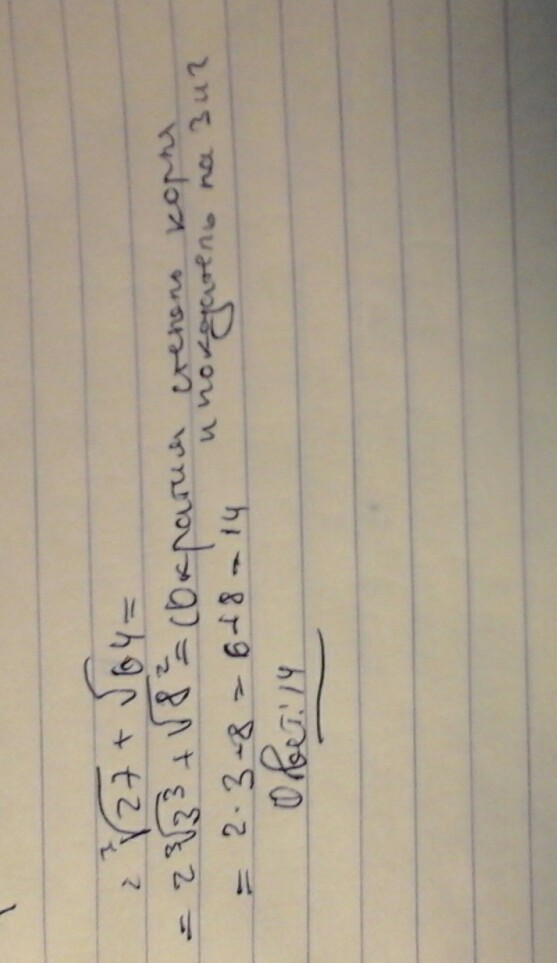 2 ³√27 + √64 =
= 2 ³√3³ + √8² = сократим степень корня
и показатель на 3 и 2
= 2 · 3 + 8 = 6 + 8 = 14
Ответ: 14